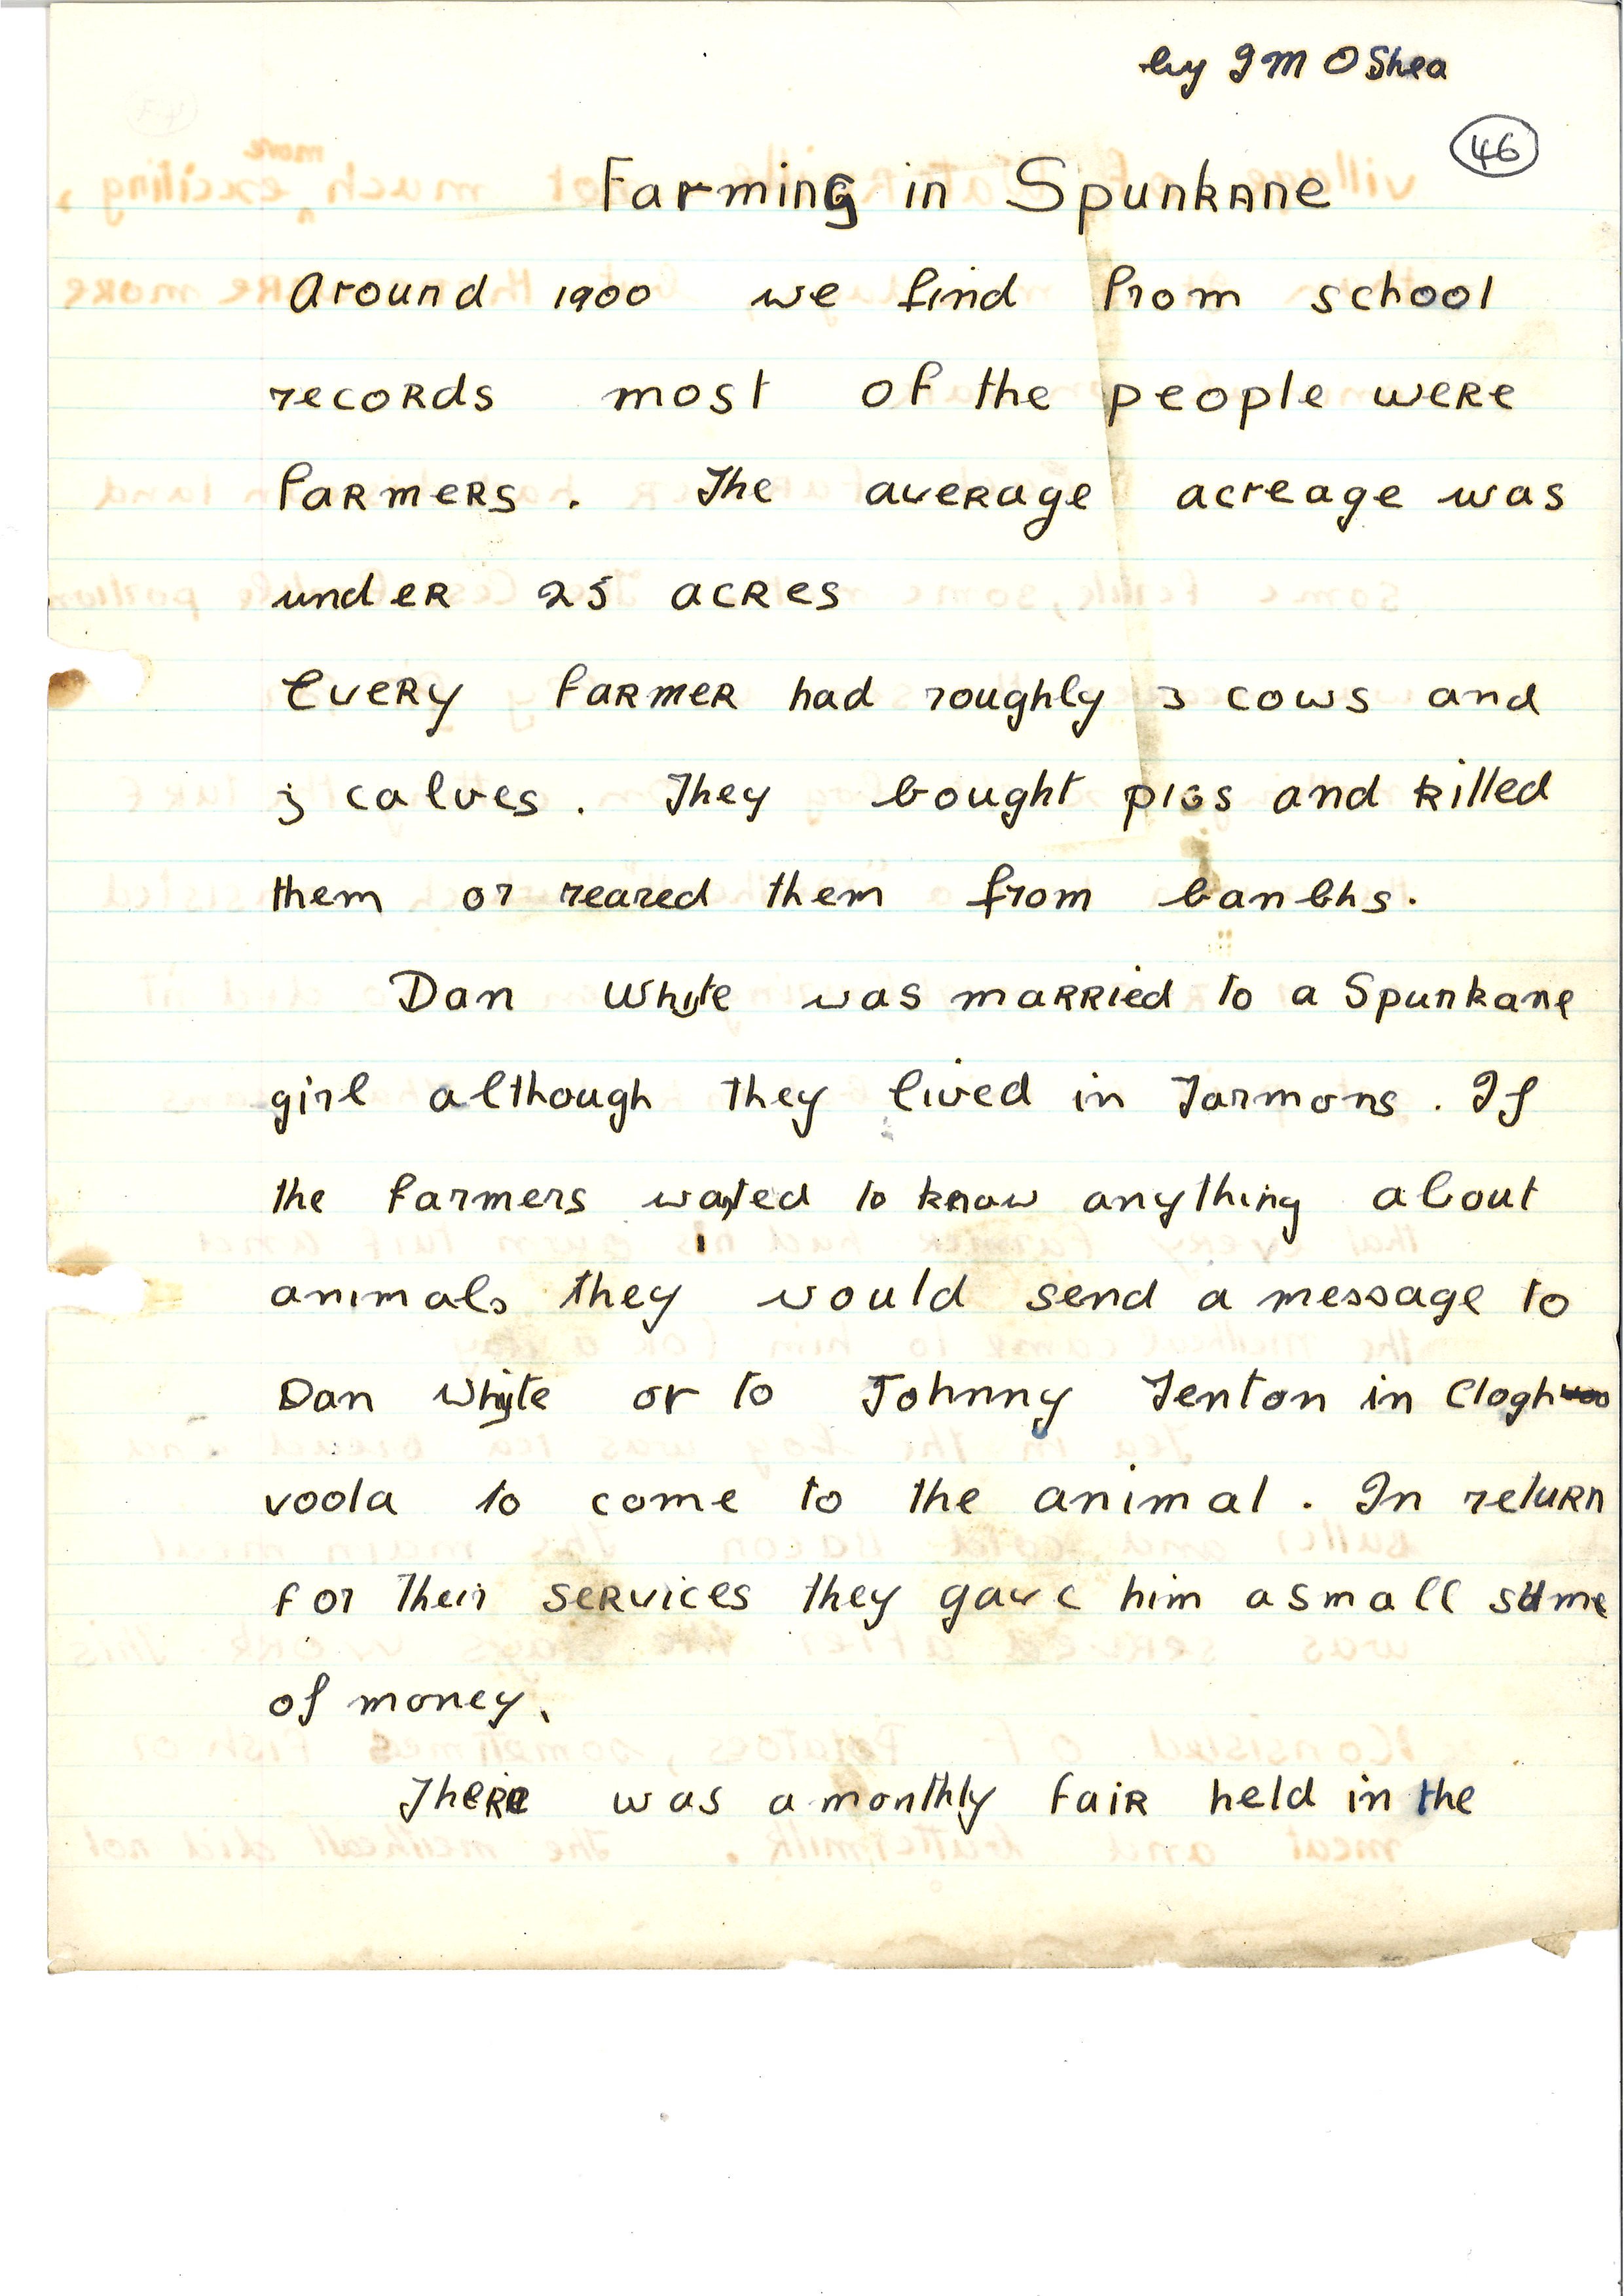 by J M O Shea
46
Farming in Spunkane
Around 1900 we find from school
records most of the people were
farmers. The average acreage was
under 25 acres
Every farmer had roughly 3 cows and
3 calves. They bought pigs and killed
them or reared them from banbhs.
Dan Whyte was married to a Spunkane
girl although they lived in Tarmons. If
the farmers wanted to know anything about
animals they would send a message to
Dan Whyte or to Johnny Fenton in Clogh
voola to come to the animal. In return
for their services they gave him a small sume
of money.
There was a monthly fair held in the